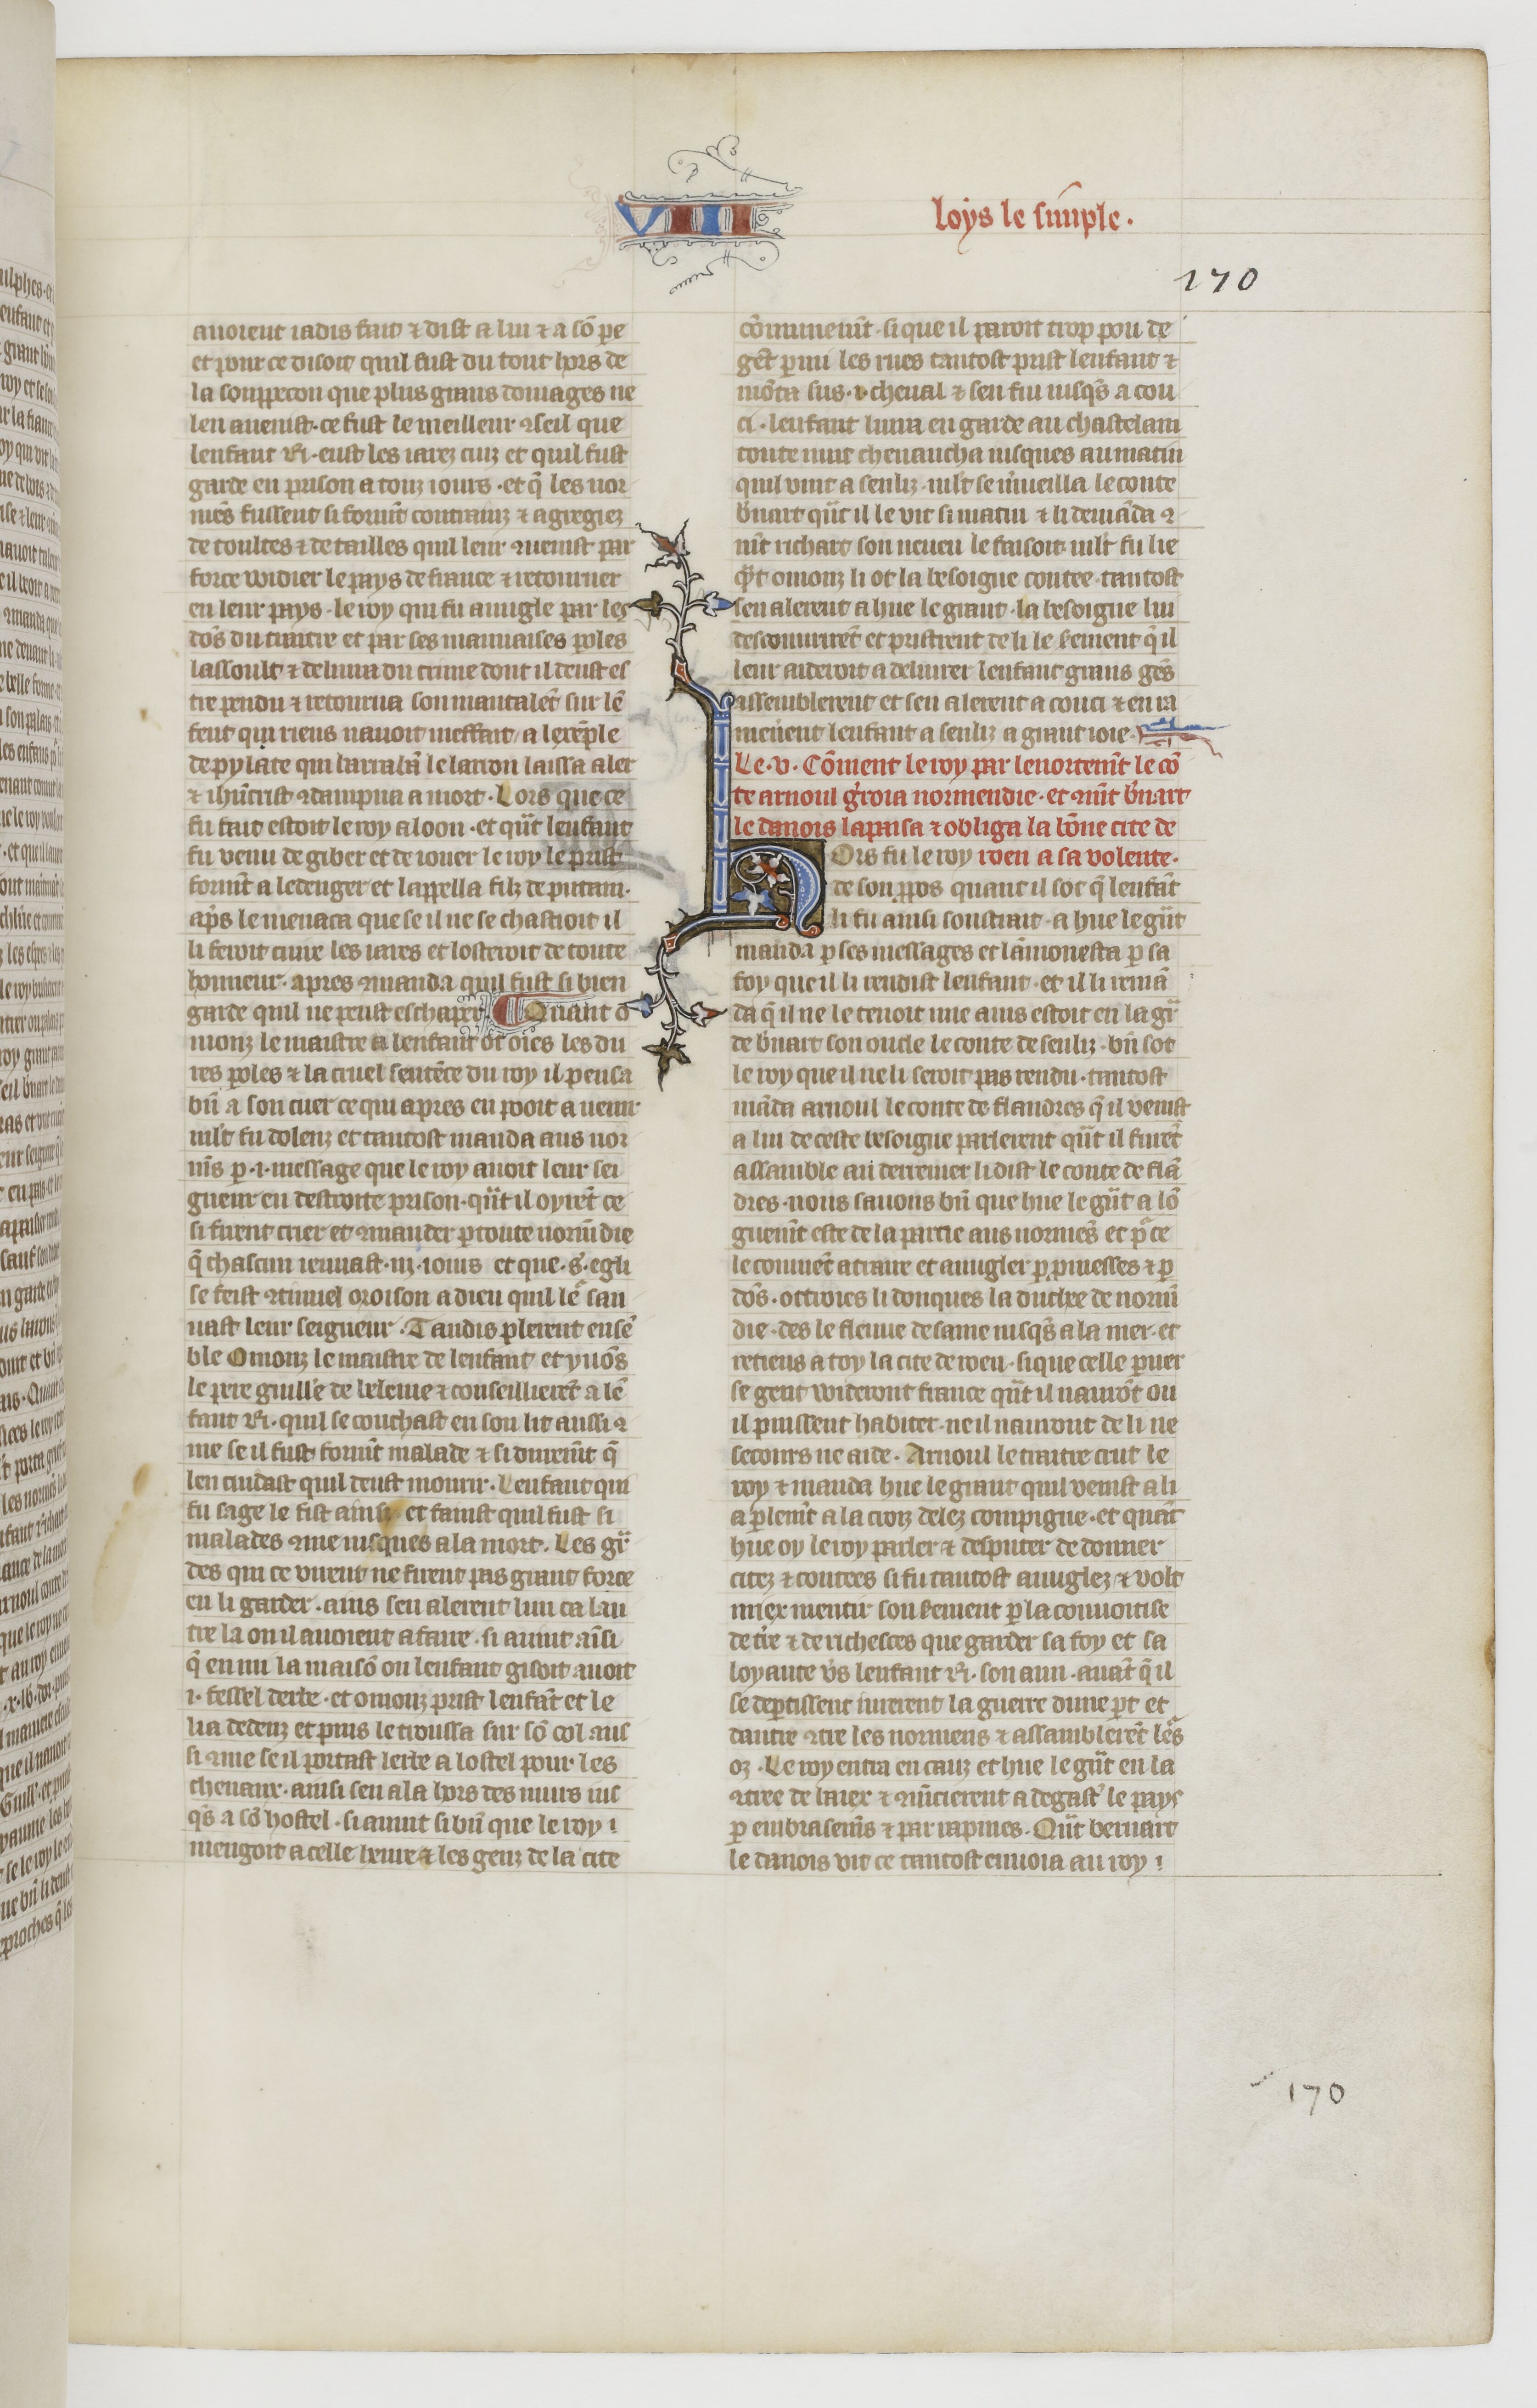 VIII
loys le simple.
170
auoient iadis fait & dist a lui & a sõ pe
et pour ce disoit quil fust du tout hors de
la souppecon que plus grans domages ne
len auenist. ce fust le meilleur ꝯseil que
lenfant Ri. eust les iarez cuiz et quil fust
garde en prison a touz iours. et q̃ les nor
mẽs fussent si formt̃ contrainz & agregiez
de toultes & de tailles quil leur ꝯuenist par
force widier le pays de france & retourner
en leur pays. le roy qui fu auugle par les
dõs du traitre et par ses mauuaises ꝑoles
lassoult & deliura du crime dont il deust es
tre pendu & retourna son mautalẽt sur lẽ
fent qui riens nauoit meffait / a lexẽple
de pylate qui barrabã le larron laissa aler
& ihũcrist ꝯdampna a mort. Lors que ce
fu fait estoit le roy a loon. et qũt lenfant
fu venu de giber et de iouer le roy le prist
formt̃ a ledenger et lappella filz de putain.
ap̃s le menaca que se il ne se chastioit il
li feroit cuire les iares et losteroit de toute
honneur. apres ꝯmanda quil fust si bien
garde quil ne peust eschaper. Quant o
monz le maistre a lenfant ot oies les du
res ꝑoles & la cruel sentẽce du roy il pensa
bñ a son cuer ce qui apres en pooit auenir
mlt fu dolenz et tantost manda aus nor
ms̃ ꝑ .i. message que le roy auoit leur sei
gneur en destroite prison. qũt il oyrẽt ce
si firent crier et ꝯmander ꝑ toute normdie
q̃ chascun ieunast .iii. iours et que .s. egli
se feist ꝯtinuel oroison a dieu quil lẽ sau
uast leur seigneur. Tandis ꝑlerent ensẽ
ble Omonz le maistre de lenfant et yuõs
le pere guille de beleme & conseillierẽt a lẽ
fant Ri. quil se couchast en son lit aussi ꝯ
me se il fust formt̃ malade & si duremt̃ q̃
len cuidast quil deust mourir. Lenfant qui
fu sage le fist ainsi et fainst quil fust si
malades ꝯme iusques a la mort. Les gr
des qui ce virent ne firent pas grant force
en li garder. ains sen alerent lun ca lau
tre la ou il auoient a faire. si auint aĩsi
q̃ en mi la maisõ ou lenfant gisoit auoit
.i. fessel derbe. et omonz prist lenfãt et le
lia dedenz et puis le troussa sur sõ col aus
si ꝯme se il portast lerbe a lostel pour les
cheuaux. ainsi sen ala hors des murs ius
qs̃ a sõ hostel. si auint si bñ que le roy !
mengoit a celle heure & les genz de la cite
cõmunemt̃. si que il paroit trop pou de
gẽt ꝑmi les rues tantost prist lenfant &
mõta sus .i. cheual & sen fui iusqs̃ a cou
ci. lenfant liura en garde au chastelain
toute nuit cheuaucha iusques au matin
quil vint a senliz. mlt se m̃ueilla le conte
b̃nart qũt il le vit si matin & li demãda ꝯ
mt̃ richart son neueu le faisoit mlt fu lie
q̃t omonz li ot la besoigne contee. tantost
sen alerent a hue le grant. la besoigne lui
descouurirẽt et pristrent de li le s̃ement q̃ il
leur aideroit a deliurer lenfant grans gẽs
assemblerent et sen alerent a couci & en ra
menent lenfant a senliz a grant ioie.
Le .v. Cõment le roy par lenortemt̃ le cõ
te arnoul g̃roia normendie. et ꝯmt̃ b̃nart
le danois lapaisa & obliga la bõne cite de
roen a sa volente.
Lors fu le roy
de son ppos quant il sot q̃ lenfãt
li fu ainsi soustrait. a hue le gũt
manda ꝑ ses messages et lãmonesta ꝑ sa
foy que il li rendist lenfant. et il li remã
da q̃ il ne le tenoit mie ains estoit en la gr
de b̃nart son oncle le conte de senliz. bñ sot
le roy que il ne li seroit pas rendu. tantost
mãda arnoul le conte de flandres q̃ il venist
a lui de ceste besoigne parlerent qũt il furẽt
assamble au derrenier li dist le conte de flã
dres. nous sauons bñ que hue le gũt a lõ
guemt̃ este de la partie aus normẽs et pͬ ce
le couuiẽt atraire et auugler ꝑ pmesses & ꝑ
dõs. ottroies li donques la duchee de norm̃
die. des le fleuue de saine iusqs̃ a la mer. et
retiens a toy la cite de roen. si que celle puer
se gent wideront france qũt il naurõt ou
il puissent habiter. ne il nauront de li ne
secours ne aide. Arnoul le traitre crut le
roy & manda hue le grant quil venist a li
a ꝑlemt̃ a la croiz delez compigne. et quãt
hue oy le roy parler & desputer de donner
citez & contees si fu tantost auuglez & volt
miex mentir son s̃ement ꝑ la conuoitise
de tr̃e & de richesces que garder sa foy et sa
loyaute v̾s lenfant Ri. son ami. auãt q̃ il
se deꝑtissent iurerent la guerre dune ꝑt et
dautre ꝯtre les normens & assamblerẽt les
oz. Le roy entra en cauz et hue le gũt en la
ꝯtree de baiex & ꝯmẽcierent a degast̾ le pays
ꝑ embrasemt̃s & par rapines. Qũt bernart
le danois vit ce tantost enuoia au roy !
170